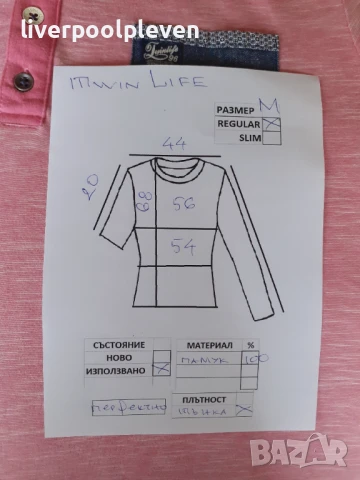 liverpoolpleven
Twinlife
TWIN LIFE
РАЗМЕР M
REGULAR X
SLIM
44
20
68
56
54
СЪСТОЯНИЕ
НОВО
ИЗПОЛЗВАНО X
перфектно
МАТЕРИАЛ %
ПАМУК 100
ПЛЪТНОСТ
ТЪНКА X
BAZAR